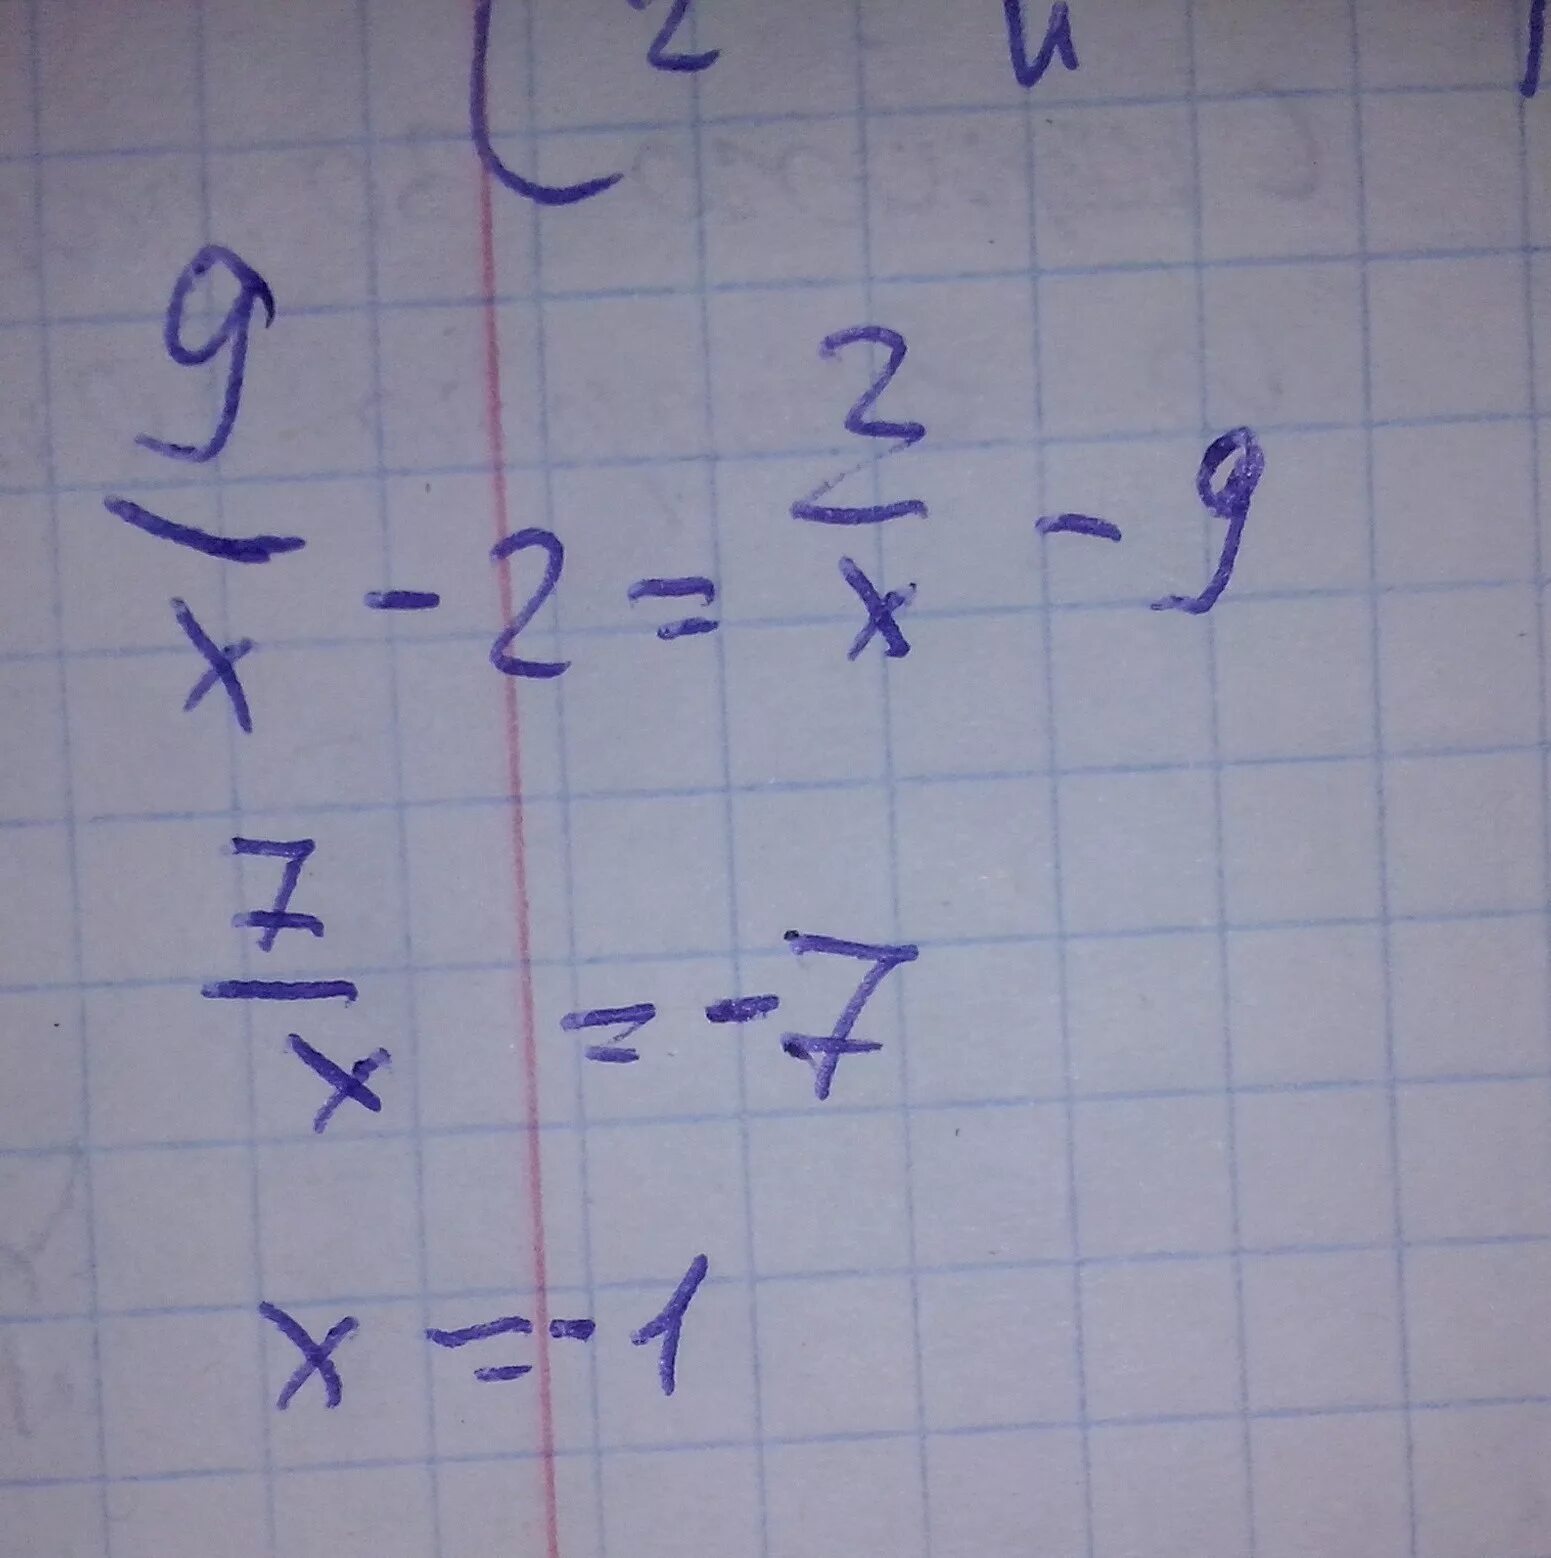 9/x - 2 = 2/x - 9
7/x = -7
x = -1